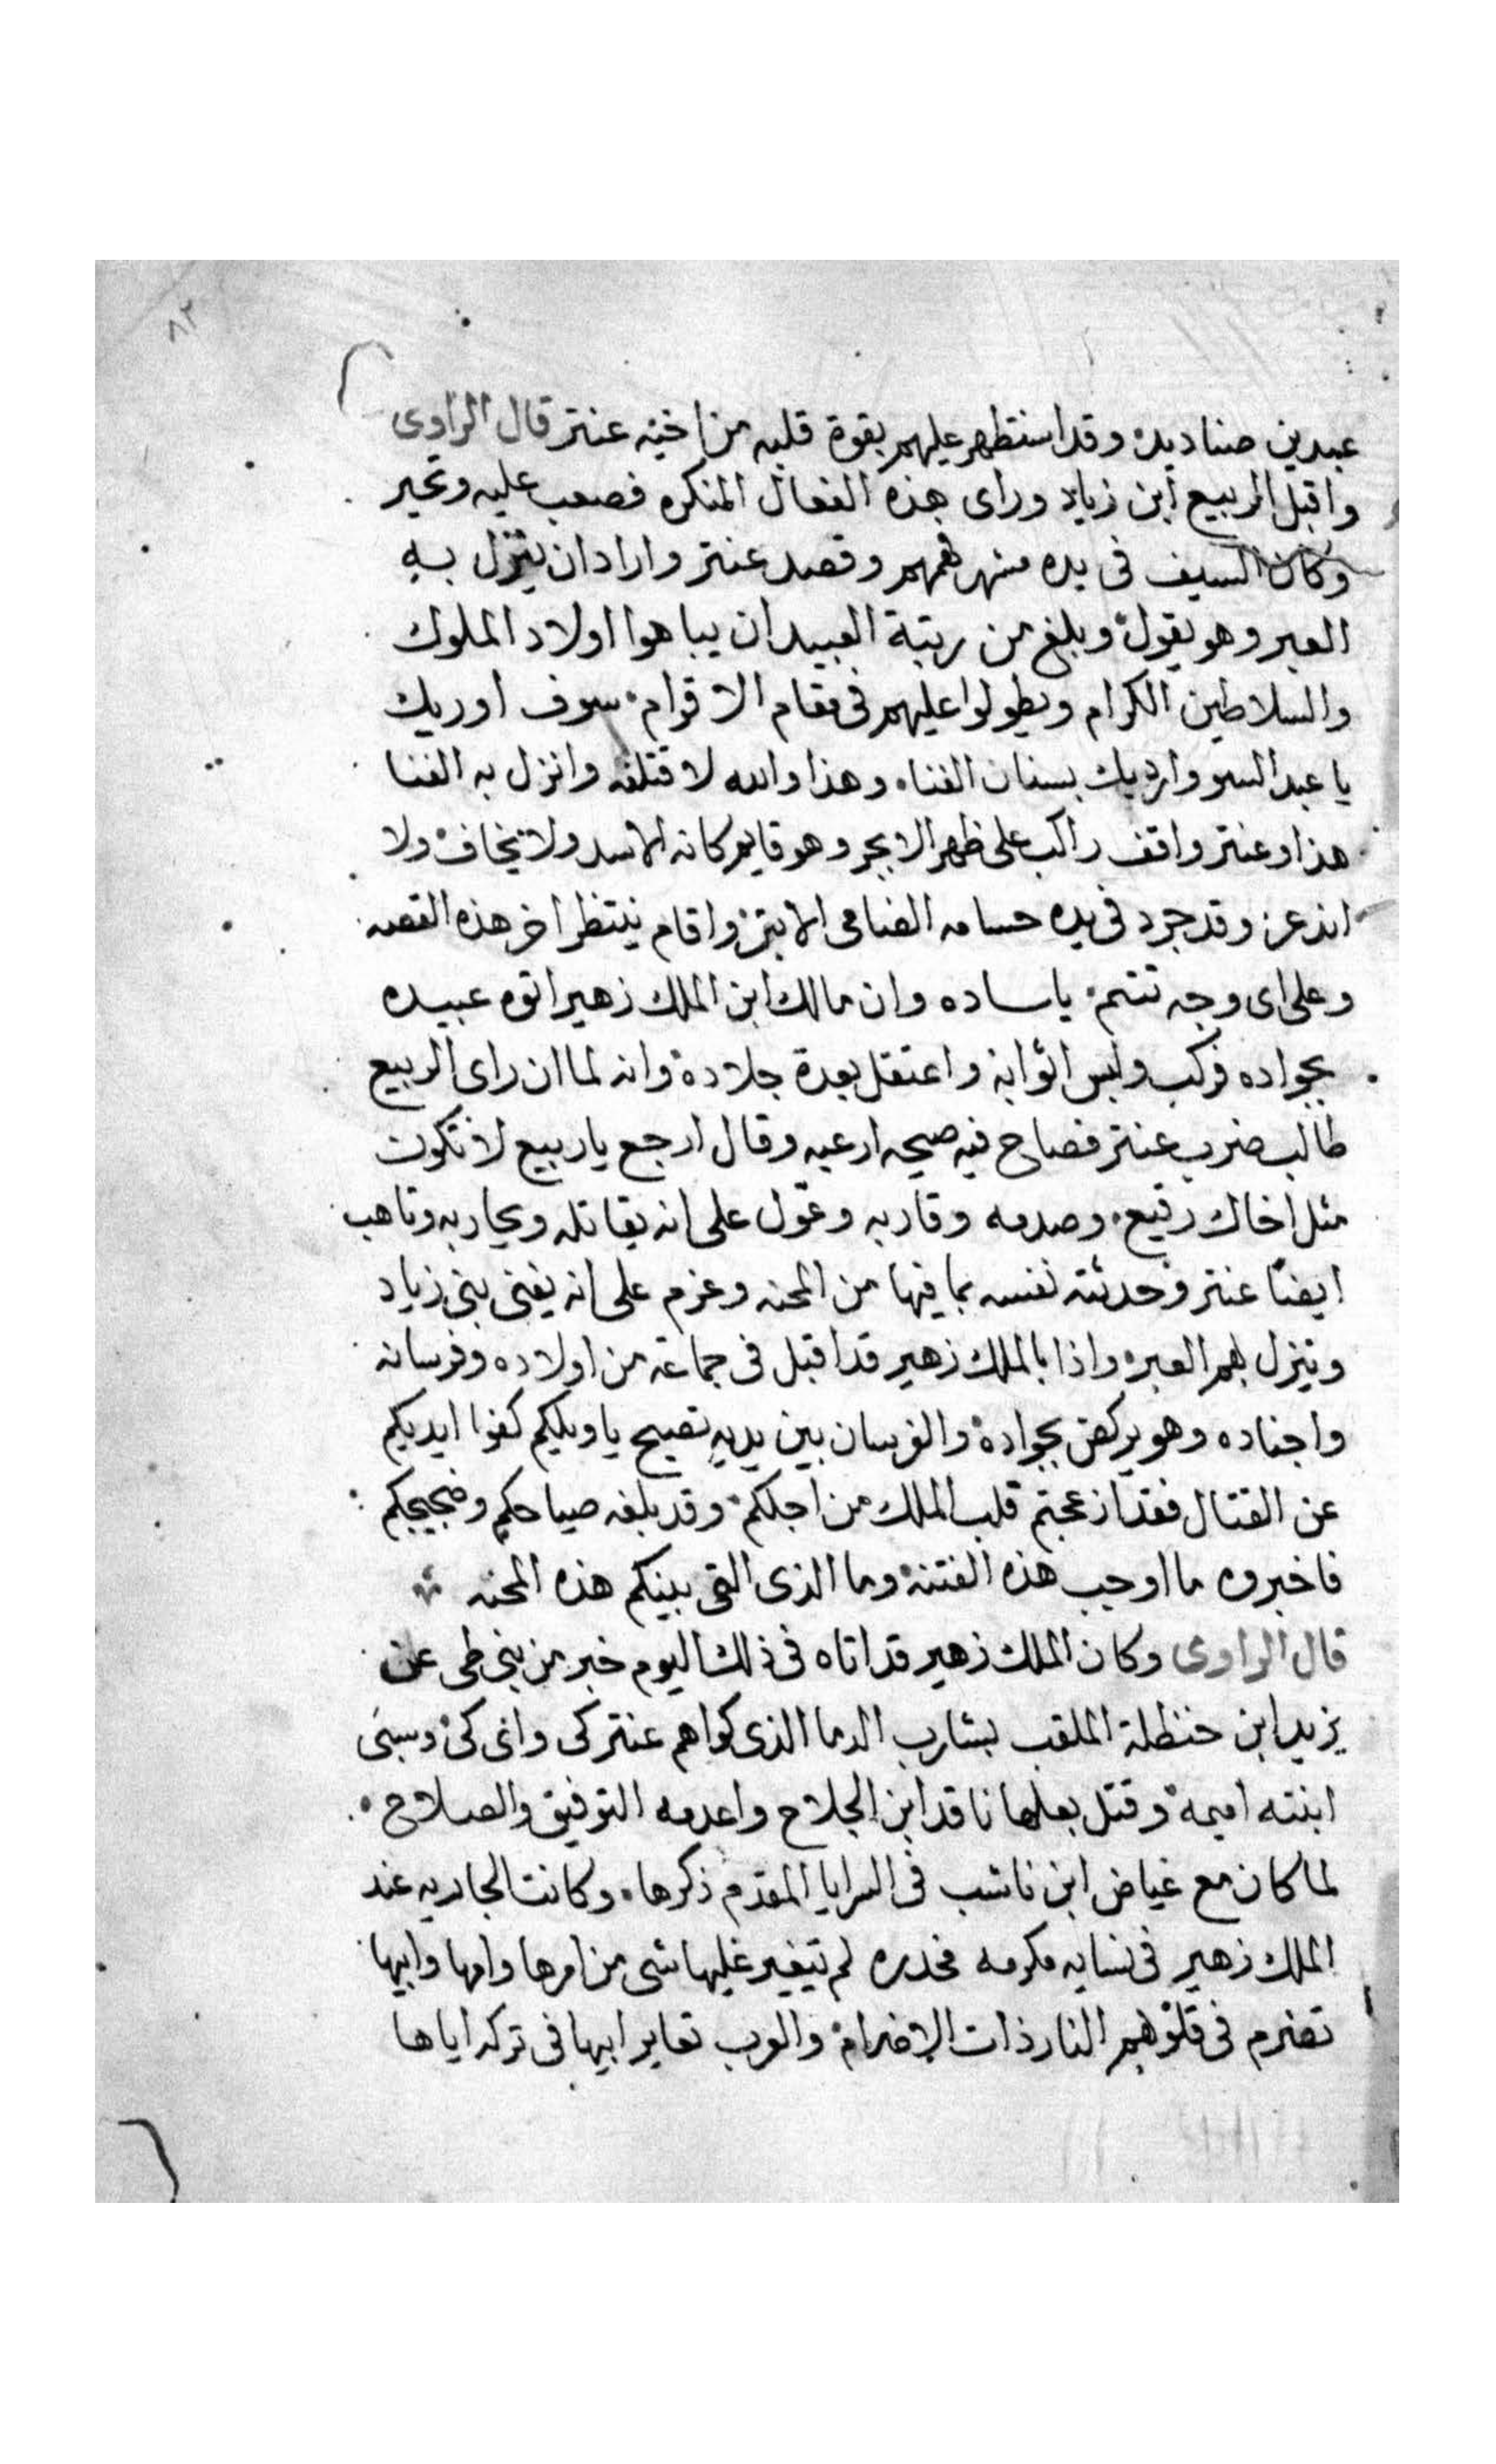 ٨٢
عبدين صناديد وقد استظهر عليهم بقوة قلبه من اخيه عنتر قال الراوى
واقبل الربيع ابن زياد وراى هذه الفعال المنكره فصعب عليه وتحير
وكان السيف فى يده مشهر فهمهم وقصد عنتر واراد ان ينزل به
العبر وهو يقول وبلغ من رتبة العبيد ان يباهوا اولاد الملوك
والسلاطين الكرام ويطولوا عليهم فى مقام الاقوام سوف اوريك
يا عبد السو وارديك بسنان القنا وهذا والله لاقتلنه وانزل به الفنا
هذا وعنتر واقف راكب على ظهر الابجر وهو قايم كانه الاسد ولا يخاف ولا
انذعر وقد جرد فى يده حسامه الضامى الابتر واقام ينتظر اخر هذه القصه
وعلى اى وجه تتم يا ساده وان مالك ابن الملك زهير اتوه عبيده
بجواده فركب ولبس اثوابه واعتقل بعدة جلاده وانه لما ان راى الربيع
طالب ضرب عنتر فصاح فيه صيحه ارعبه وقال ارجع يا ربيع لا تكون
مثل اخاك رقيع وصدمه وقاربه وعول على انه يقاتله ويحاربه وتاهب
ايضا عنتر وحدثته نفسه بما فيها من المحنه وعزم على انه يفنى بنى زياد
وينزل بهم العبر واذا بالملك زهير قد اقبل فى جماعة من اولاده وفرسانه
واجناده وهو يركض بجواده والفرسان بين يديه تصيح يا ويلكم كفوا ايديكم
عن القتال فقد ازعجتم قلب الملك من اجلكم وقد بلغه صياحكم وضجيجكم
فاخبروه ما اوجب هذه الفتنة وما الذى القى بينكم هذه المحنه
قال الراوى وكان الملك زهير قد اتاه فى ذلك اليوم خبر من بنى طى عن
يزيد ابن حنظلة الملقب بشارب الدما الذى كواهم عنتر كى واى كى وسبى
ابنته اميمة وقتل بعلها ناقد ابن الجلاح واعدمه التوفيق والصلاح
لما كان مع غياض ابن ناشب فى السرايا المقدم ذكرها وكانت الجاريه عند
الملك زهير فى نسايه مكرمه مخدره لم تيغير عليها شى من امرها وامها وابيها
تضرم فى قلوبهم النار ذات الاضرام والعرب تعاير ابيها فى تركه اياها